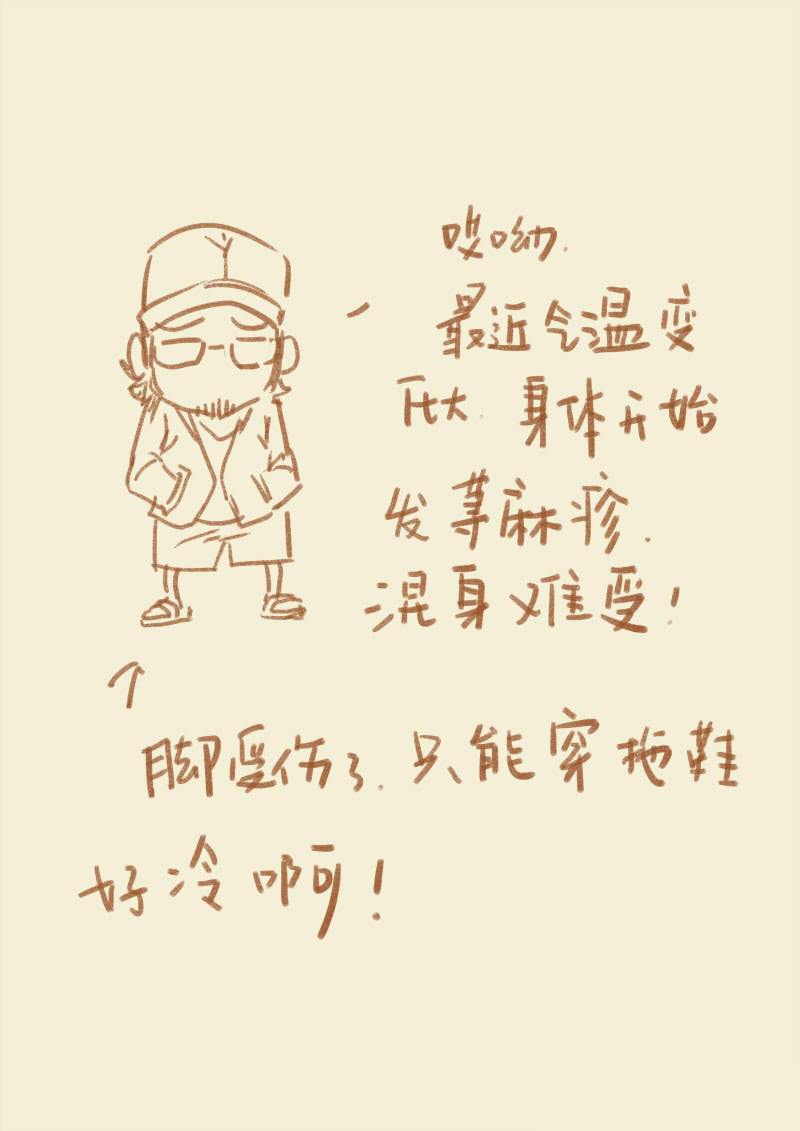 哎呦.
最近气温变
大.身体开始
发荨麻疹.
混身难受!
脚受伤了.只能穿拖鞋
好冷啊!